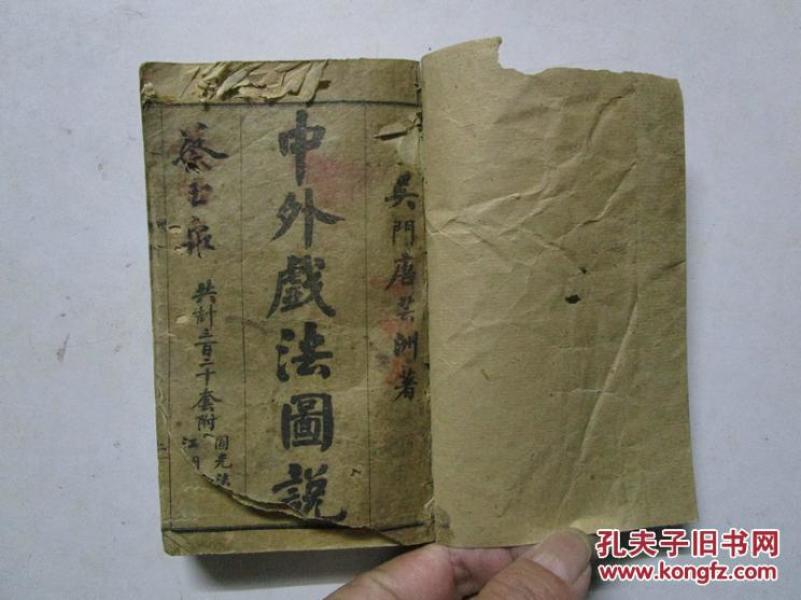 吳門唐芸洲著
中外戲法圖說
蔡玉
共計三百二十套附
圓光法
江
孔夫子旧书网
www.kongfz.com